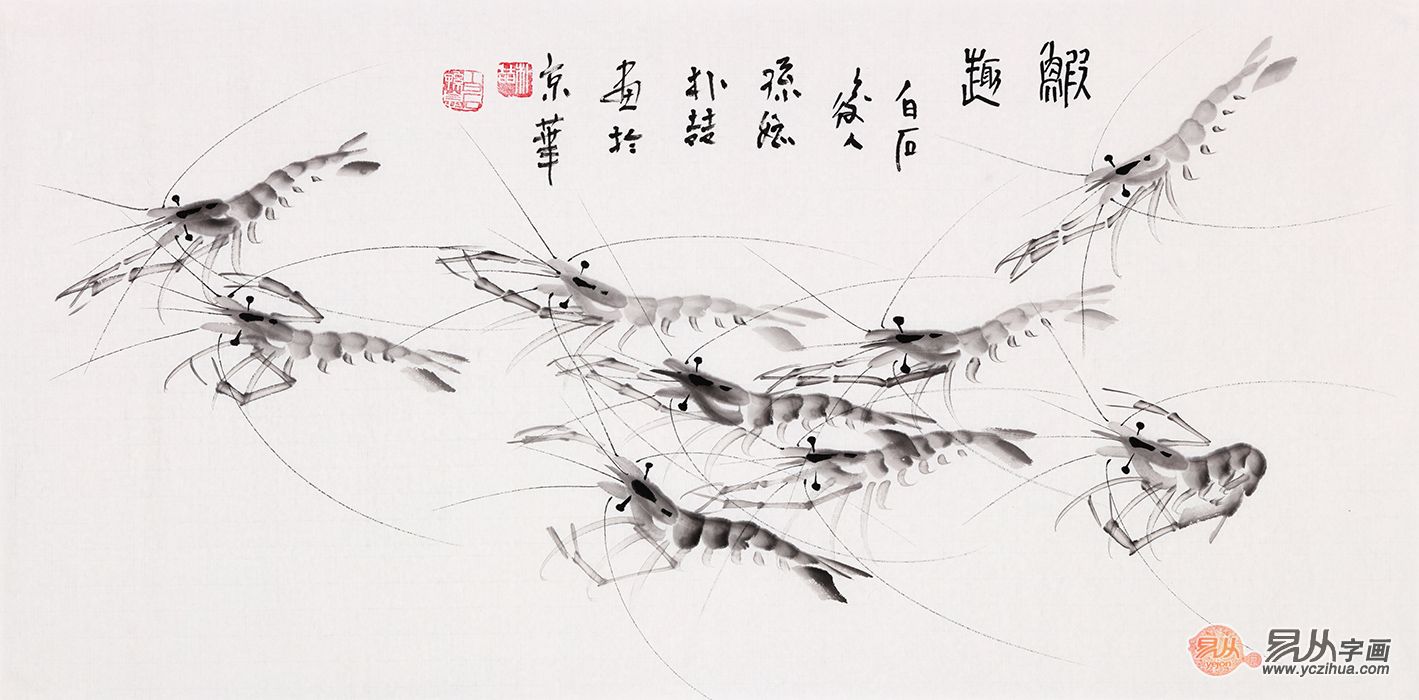 鰕
趣
白石
後人
孫媳
朴喆
畫於
京華
易从
易从字画
www.yczihua.com